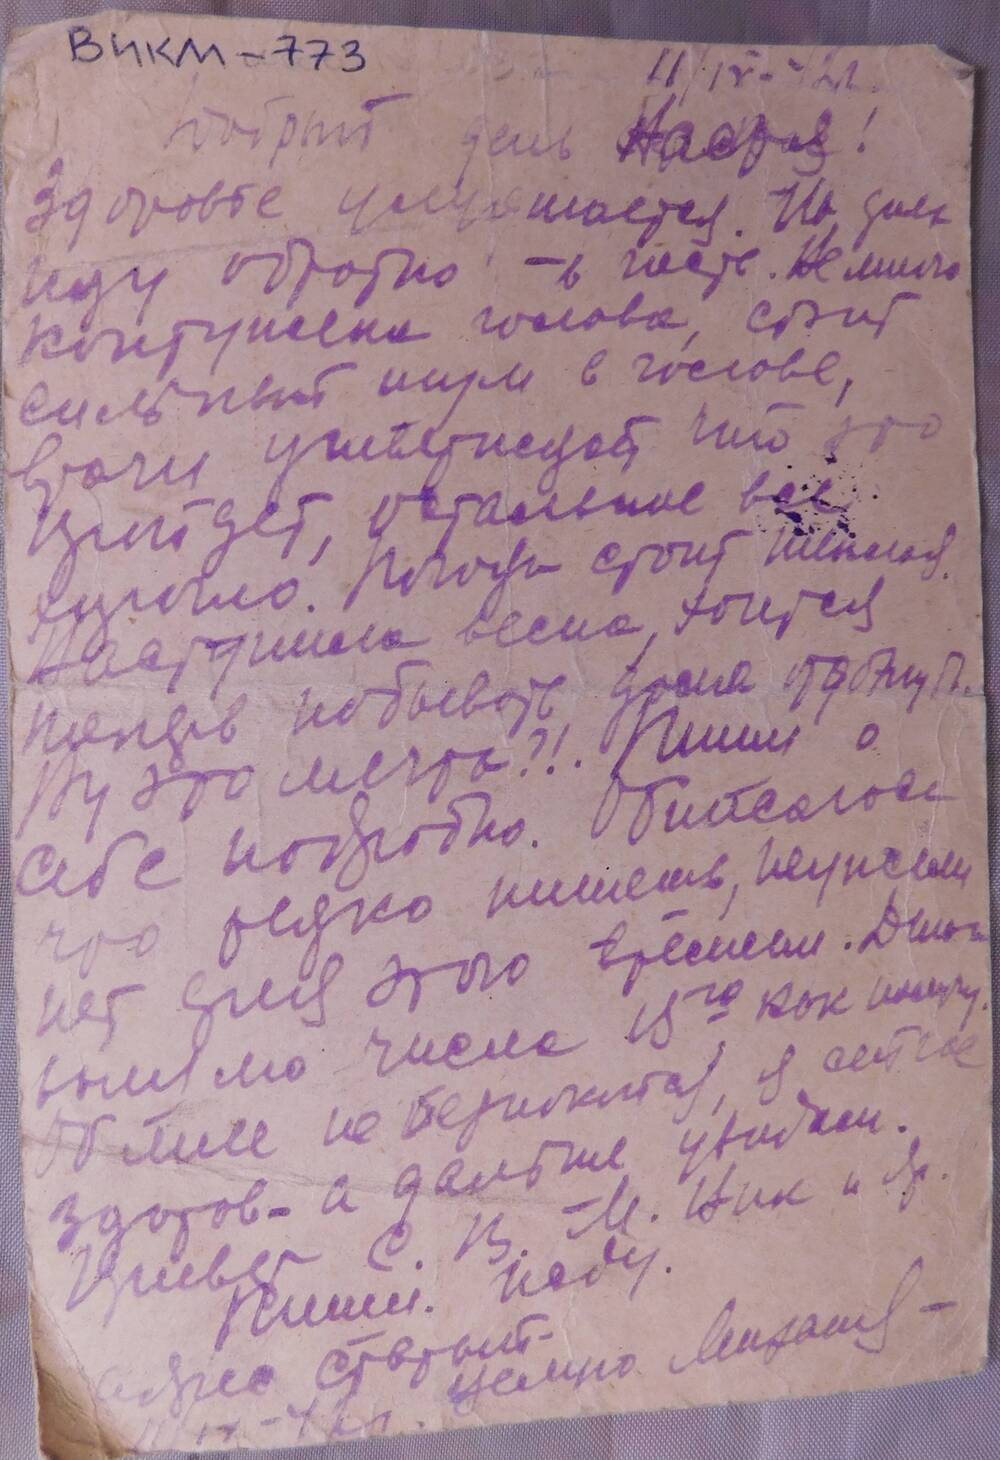 ВИКМ-773
11/IV-42г.
Добрый день Настя!
Здоровье улучшается. На днях
иду обратно - в часть. Немного
контужена голова, стоит
сильный шум в голове,
врачи утверждают что это
пройдет, остальное все
хорошо. Погода стоит теплая.
Наступила весна, хочется
побывать дома отдохнуть.
Ну это мечта?!. Пиши о
себе подробно. Обижаюсь
что редко пишешь, неужели
нет для этого времени. Деньги
вышлю числа 15го как получу.
Обо мне не беспокойся, я сейчас
здоров - а дальше увидим.
Привет С. В. - М. Ник и
Пиши. Жду.
адрес старый - целую Михаил -
11/IV-42г.